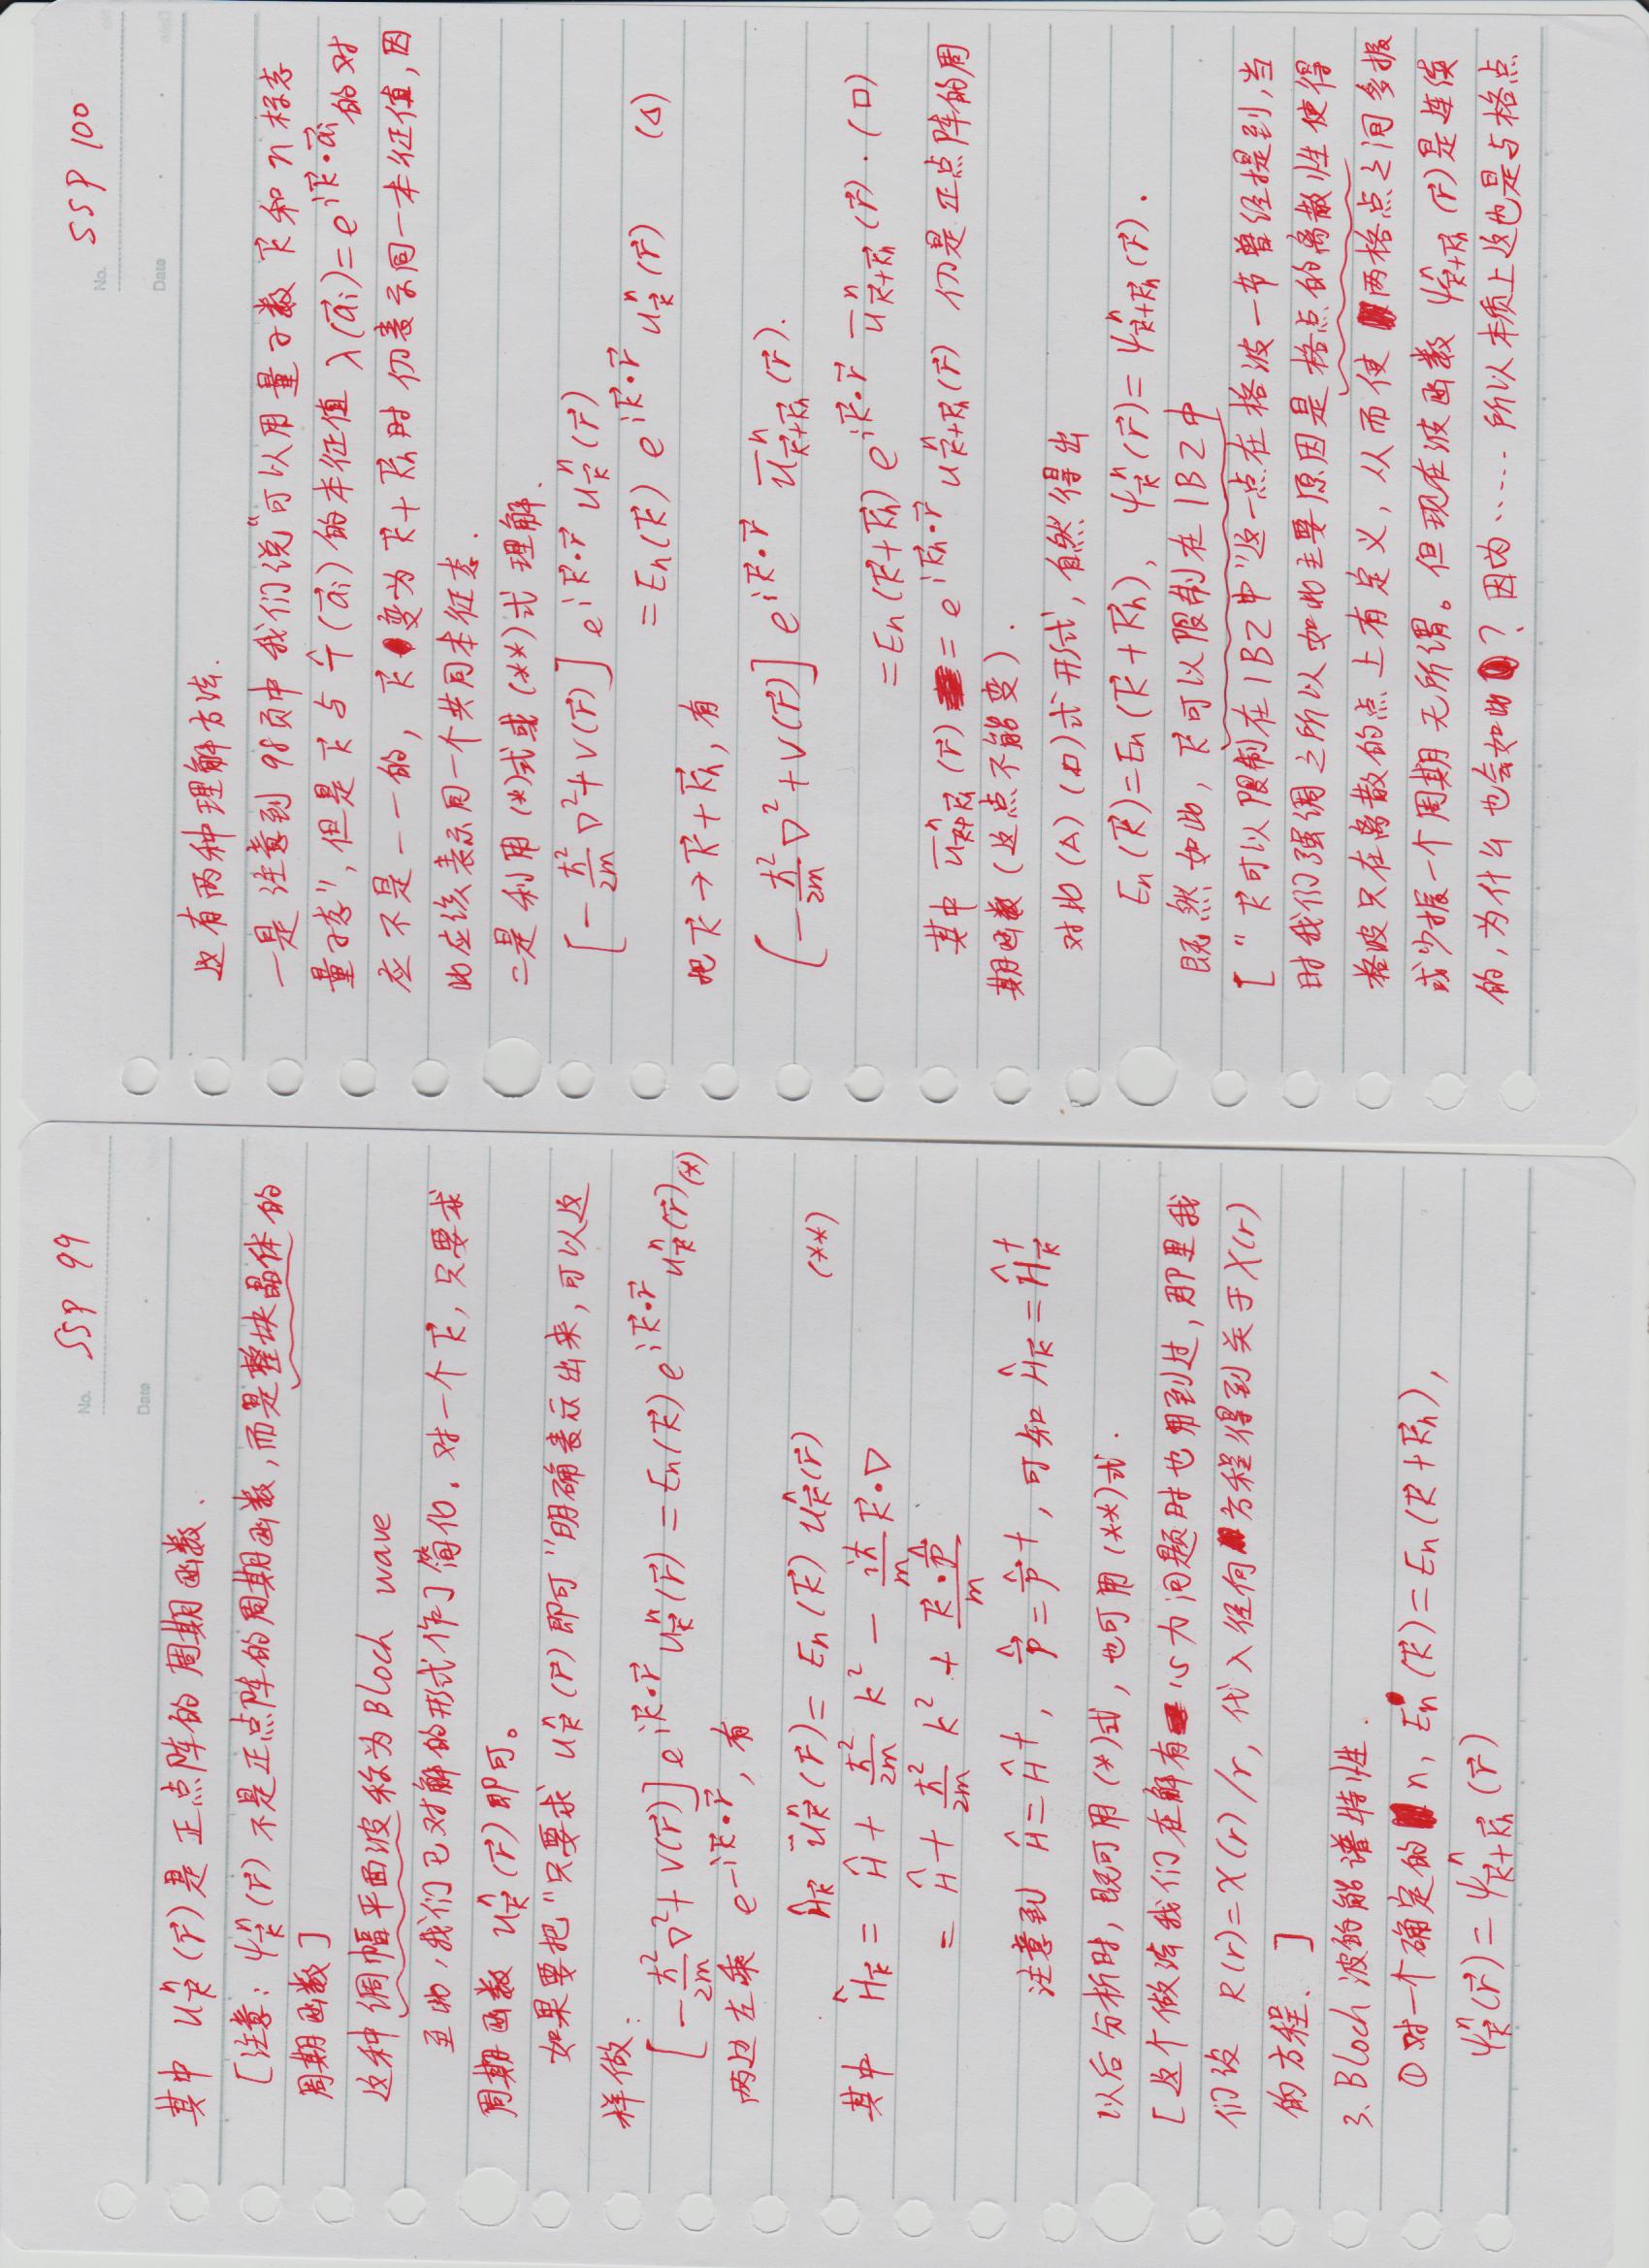 No. SSP 99
Date
其中 u^n_k⃗ (r⃗) 是正点阵的周期函数.
[注意: ψ^n_k⃗ (r⃗) 不是正点阵的周期函数, 而是整块晶体的
周期函数]
这种调幅平面波称为Bloch wave
至此, 我们已对解的形式作了简化. 对一个 k⃗, 只要求
周期函数 u^n_k⃗ (r⃗) 即可。
如果要把"只要求 u^n_k⃗ (r⃗) 即可"明确表示出来, 可以这
样做:
[-ħ²/2m ∇² + V(r⃗)] e^{ik⃗·r⃗} u^n_k⃗(r⃗) = En(k⃗) e^{ik⃗·r⃗} u^n_k⃗(r⃗) (*)
两边左乘 e^{-ik⃗·r⃗}, 有
Ĥ_k⃗ u^n_k⃗(r⃗) = En(k⃗) u^n_k⃗(r⃗) (**)
其中 Ĥ_k⃗ = Ĥ + ħ²/2m k² - iħ/m k⃗·∇
= Ĥ + ħ²/2m k² + k⃗·p̂/m
注意到 Ĥ = Ĥ†, p̂ = p̂†, 可知 Ĥ_k⃗ = Ĥ†_k⃗
以后分析时, 既可用 (*)式, 也可用 (**)式.
[这个做法我们在解有心力问题时也用到过, 那里我
们设 R(r)=χ(r)/r, 代入径向方程得到关于χ(r)
的方程. ]
3. Bloch 波的能谱特性.
① 对一个确定的 n, En(k⃗) = En(k⃗+K⃗h),
ψ^n_k⃗(r⃗) = ψ^n_{k⃗+K⃗h}(r⃗)
No. SSP 100
Date
这有两种理解方法.
一是注意到98页中我们说"可以用量子数 k⃗ 和 n 标志
量子态", 但是 k⃗ 与 T̂(a⃗i) 的本征值 λ(a⃗i)=e^{ik⃗·a⃗i} 的对
应不是一一的, k⃗ 变为 k⃗+K⃗h 时仍表示同一本征值, 因
此应该表示同一个共同本征态.
二是利用 (*)式或 (**)式理解.
[-ħ²/2m ∇² + V(r⃗)] e^{ik⃗·r⃗} u^n_k⃗(r⃗)
= En(k⃗) e^{ik⃗·r⃗} u^n_k⃗(r⃗) (△)
把 k⃗ → k⃗+K⃗h, 有
[-ħ²/2m ∇² + V(r⃗)] e^{ik⃗·r⃗} ū^n_{k⃗+K⃗h}(r⃗).
= En(k⃗+K⃗h) e^{ik⃗·r⃗} ū^n_{k⃗+K⃗h}(r⃗). (□)
其中 ū^n_{k⃗+K⃗h}(r⃗) = e^{iK⃗h·r⃗} u^n_{k⃗+K⃗h}(r⃗) 仍是正点阵的周
期函数 (这点不能变).
对比 (△) (□) 式形式, 自然得出
En(k⃗)=En(k⃗+K⃗h), ψ^n_k⃗(r⃗) = ψ^n_{k⃗+K⃗h}(r⃗).
既然如此, k⃗可以限制在1BZ中
["k⃗可以限制在1BZ中"这一点在格波一节曾经提到, 当
时我们强调之所以如此主要原因是格点的离散性使得
格波只在离散的点上有定义, 从而使两格点之间多振
或少振一个周期无所谓。但现在波函数 ψ^n_{k⃗+K⃗h}(r⃗)是连续
的, 为什么也会如此? 因为…… 所以本质上这也是与格点